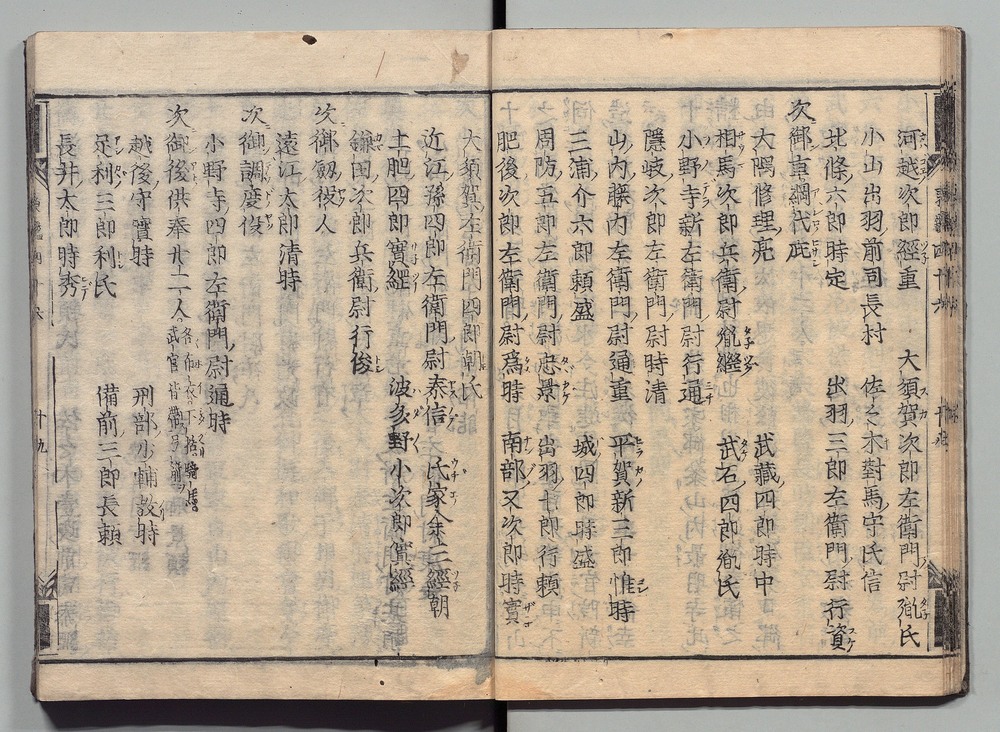 河越次郎經重　大須賀次郎左衛門尉胤氏
小山出羽前司長村　佐々木對馬守氏信
北條六郎時定　出羽三郎左衛門尉行資
次御車綱代庇
大隅修理亮　武藏四郎時中
相馬次郎兵衛尉胤繼　武石四郎胤氏
小野寺新左衛門尉行通
隱岐次郎左衛門尉時清
山内藤内左衛門尉通重　平賀新三郎惟時
三浦介六郎頼盛　城四郎時盛
周防五郎左衛門尉忠景　出羽七郎行頼
肥後次郎左衛門尉爲時　南部又次郎時實
大須賀左衛門四郎朝氏
近江孫四郎左衛門尉泰信　氏家余三經朝
土肥四郎實經　波多野小次郎實經
鎌田次郎兵衛尉行俊
次御劔役人
遠江太郎清時
次御調度役
小野寺四郎左衛門尉通時
次御後供奉廿二人各布衣下括
武官皆帶弓箭
越後守實時　刑部少輔教時
足利三郎利氏　備前三郎長頼
長井太郎時秀
十九